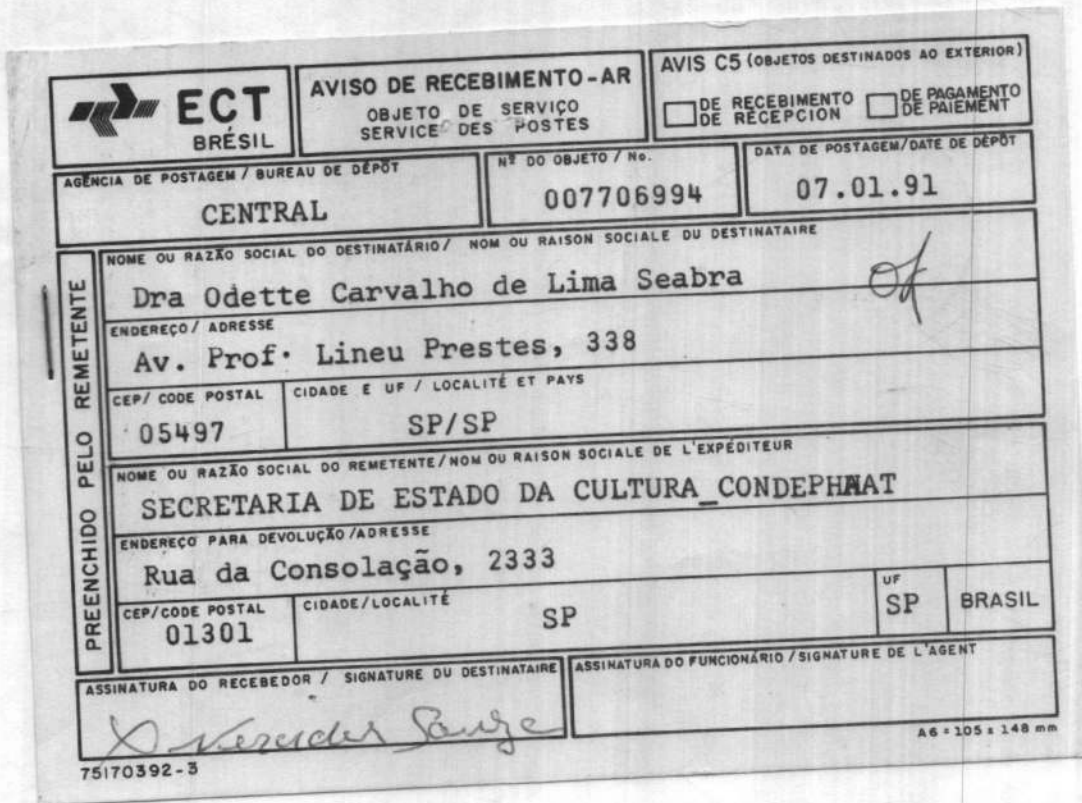 ECT
BRÉSIL
AVISO DE RECEBIMENTO-AR
OBJETO DE SERVIÇO
SERVICE DES POSTES
AVIS C5 (OBJETOS DESTINADOS AO EXTERIOR)
DE RECEBIMENTO
DE RÉCEPCION
DE PAGAMENTO
DE PAIEMENT
AGÊNCIA DE POSTAGEM / BUREAU DE DÉPÔT
CENTRAL
Nº DO OBJETO / No.
007706994
DATA DE POSTAGEM/DATE DE DÉPÔT
07.01.91
PREENCHIDO PELO REMETENTE
NOME OU RAZÃO SOCIAL DO DESTINATÁRIO/ NOM OU RAISON SOCIALE DU DESTINATAIRE
Dra Odette Carvalho de Lima Seabra
ENDEREÇO/ ADRESSE
Av. Prof. Lineu Prestes, 338
CEP/ CODE POSTAL
05497
CIDADE E UF / LOCALITÉ ET PAYS
SP/SP
NOME OU RAZÃO SOCIAL DO REMETENTE/NOM OU RAISON SOCIALE DE L'EXPÉDITEUR
SECRETARIA DE ESTADO DA CULTURA_CONDEPHAAT
ENDEREÇO PARA DEVOLUÇÃO/ADRESSE
Rua da Consolação, 2333
CEP/CODE POSTAL
01301
CIDADE/LOCALITÉ
SP
UF
SP
BRASIL
ASSINATURA DO RECEBEDOR / SIGNATURE DU DESTINATAIRE
Souza
ASSINATURA DO FUNCIONÁRIO / SIGNATURE DE L'AGENT
75170392-3
A6 = 105 x 148 mm